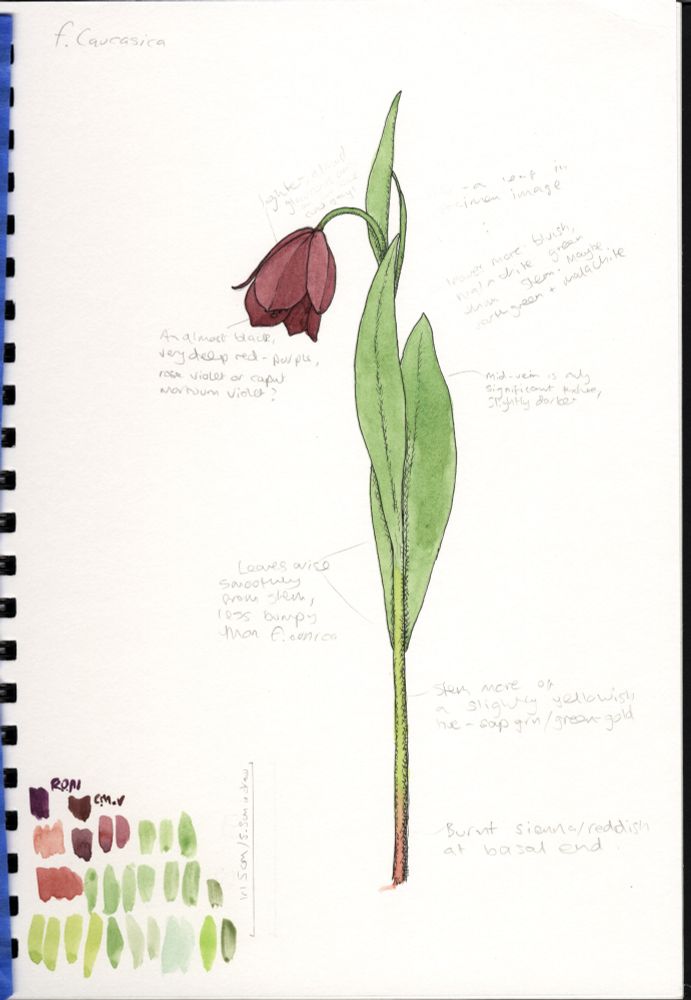 f. Caucasica
lighter, almost
- a leaf in
image
more bluish,
malachite green
than stem. Maybe
green + malachite
An almost black,
very deep red-purple,
rose violet or caput
mortuum violet?
Mid-vein is only
significant texture,
slightly darker
Leaves arise
smoothly
from stem,
less bumpy
than F. conica
Stem more of
a slightly yellowish
hue - sap grn/green-gold
Burnt sienna/reddish
at basal end.
C.M.V